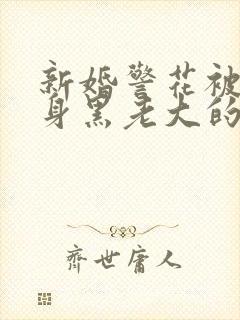 新婚警花被
身黑老大的
齐世庸人